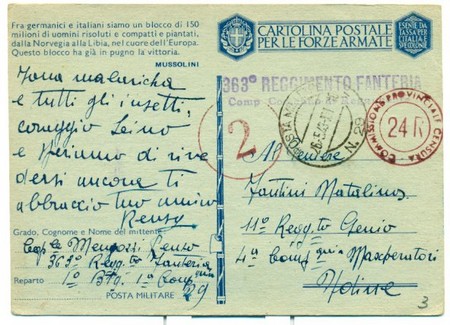 Fra germanici e italiani siamo un blocco di 150
milioni di uomini risoluti e compatti e piantati,
dalla Norvegia alla Libia, nel cuore dell'Europa.
Questo blocco ha già in pugno la vittoria.
MUSSOLINI
CARTOLINA POSTALE
PER LE FORZE ARMATE
ESENTE DA
TASSA PER
L'ITALIA E
SPEDIZIONE
363° REGGIMENTO FANTERIA
Comp
zona malarica
e tutti gli insetti,
coraggio
e speriamo di rive
dersi ancora ti
abbraccio tuo amico
Renzo
2
POSTA MILITARE N. 29
COMMISSIONE PROVINCIALE CENSURA
24 R
Grado, Cognome e Nome del mittente
Renzo
363° Regg.to Fanteria
Reparto 1° Btg. 1ª Comp.
POSTA MILITARE 29
Fantini Natalino
11° Regg.to Genio
4ª Comp. Marconisti
Udine
3